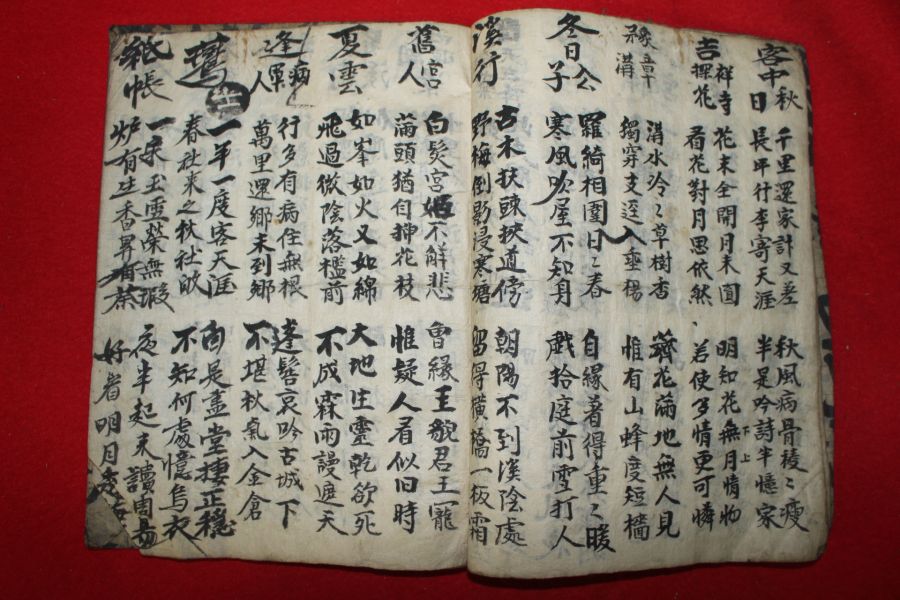 客中秋
日
千里還家計又差 秋風病骨稜〻瘦
長坪行李寄天涯 半是吟詩半憶家
吉祥寺
探花
花未全開月未圓 明知花無月情物
下 上
看花對月思依然 若使多情更可憐
豫章
溝
溝水泠〻草樹香 薺花滿地無人見
獨穿支逕入垂楊 惟有山蜂度短檣
冬日公
子
羅綺相圍日〻春 自緣著得重〻暖
寒風吹屋不知身 戲拾庭前雪打人
溪行
古木扶疎挾道傍 朝陽不到溪陰處
野梅倒影浸寒塘 留得橫橋一板霜
舊宮
人
白髮宮姬不解悲 曾緣玉貌君王寵
滿頭猶自揷花枝 惟疑人看似旧時
夏雲
如峯如火又如綿 大地生靈乾欲死
飛過微陰落檻前 不成霖雨謾遮天
逢病
軍人
行多有病住無根 蓬鬢哀吟古城下
萬里還鄉未到鄉 不堪秋氣入金倉
鷰
一年一度客天涯 自是畫堂棲正穩
春社來之秋社皈 不知何處憶烏衣
紙帳
一朵玉雲榮無瑕 夜半起來讀周易
炉有生香鼎有茶 好省明月